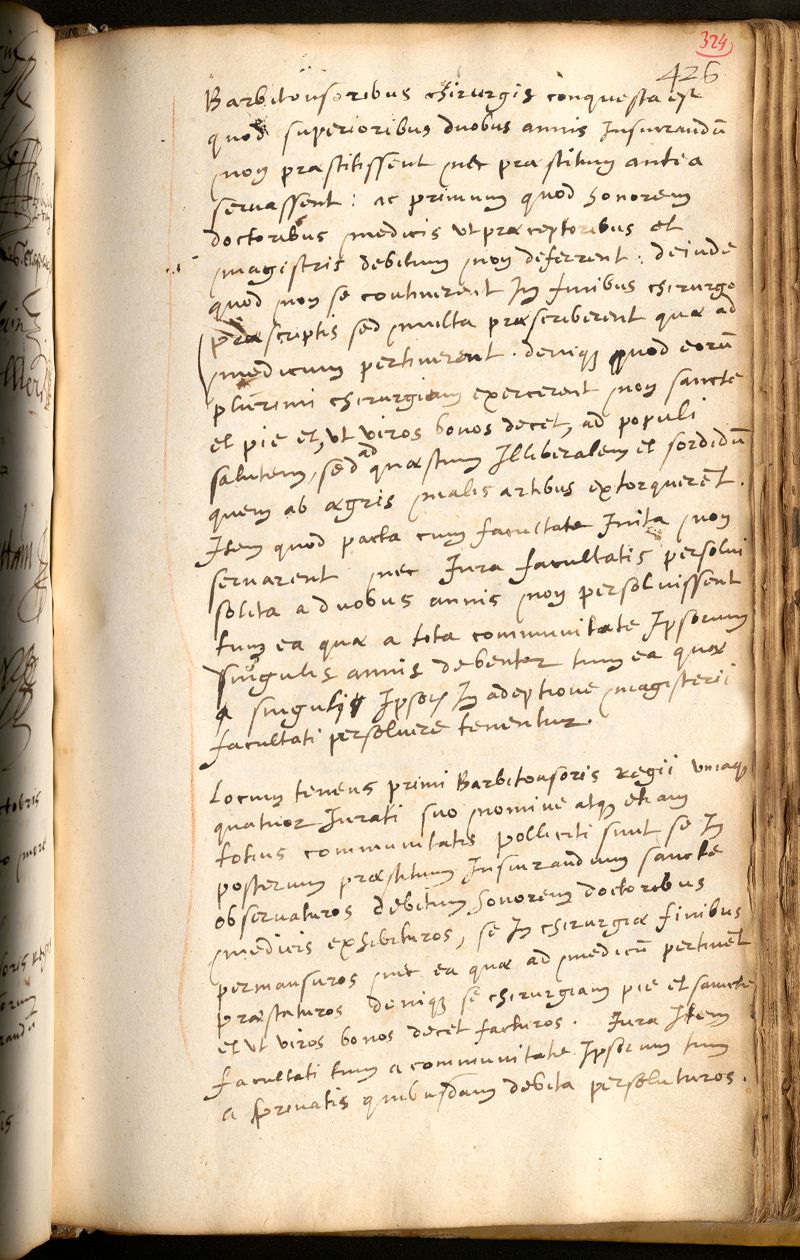 324
426
Barbitonsoribus chirurgis conquesta est
quod superioribus duobus annis Iusiurandū
non praestitissent nec praestitum antea
servassent : ac primum quod honorem
doctoribus medicis ut praeceptoribus et
magistris debitum non deferrent : deinde
quod non se continerent In finibus chirurgo
praescriptis sed multa praescriberent quae ad
medicum pertinerent . deniqꝫ quod eorū
plurimi chirurgiam exercerent non sancte
et pie et, ut viros bonos decet, ad populi
salutem, sed ad quaestum Illiberalem et sordidū
quem ab aegris malis artibus extorquerēt .
Item quod pacta cum facultate Inita non
servarent nec Iura facultatis persolvi
solita a duobus annis non persolvissent
tum ea quae a tota communitate Ipsorum
singulis annis debentur tum ea quae
a singulis Ipsoꝝ In adeptione magisterii
facultati persolvere tenentur .
Locum tenens primi Barbitonsoris regii unaqꝫ
quatuor Iurati suo nomine atqꝫ etiam
totius communitatis polliciti sunt se In
posterum praestitum Iusiurandum sancte
observaturos debitum honorem doctoribus
medicis exhibituros, se In chirurgiae finibus
permansuros nec ea quae ad medicū pertinēt
praestaturos deniqꝫ se chirurgiam pie et sancte
et ut viros bonos decet facturos . Iura Item
facultati tum a communitate Ipsorum tum
a privatis quibusdam debita persoluturos .